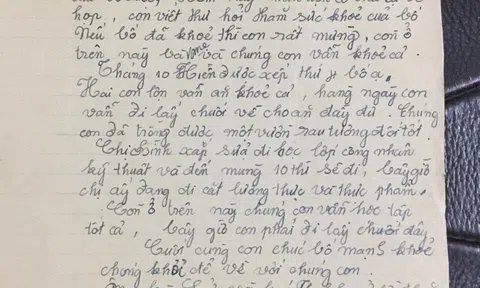 họp, con viết thư hỏi thăm sức khoẻ của bố
Nếu bố đã khoẻ thì con rất mừng, con ở
trên nay bà mẹ và chúng con vẫn khoẻ cả.
Tháng 10 Hiền được xếp thứ 8 bố ạ.
Hai con lớn vẫn ăn khoẻ cả, hàng ngày con
vẫn đi lấy chuối về cho ăn đầy đủ. Chúng
con đã trồng được một vườn rau tương đối tốt.
Chị Bình sắp sửa đi học lớp công nhân
kỹ thuật và đến mùng 10 thì sẽ đi, bây giờ
chị ấy đang đi cắt lương thực và thực phẩm.
Còn ở trên này chúng con vẫn học tập
tốt cả, bây giờ con phải đi lấy chuối đây
Cuối cùng con chúc bố mạnh khoẻ
chóng khỏi để về với chúng con.